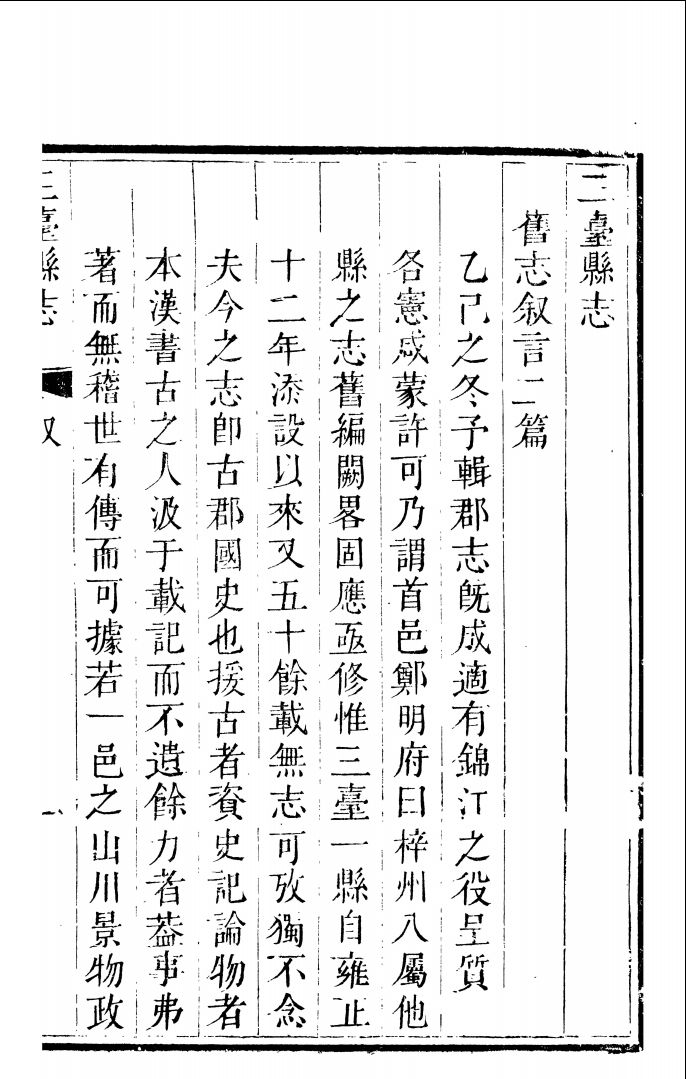 三臺縣志
舊志叙言二篇
乙巳之冬予輯郡志旣成適有錦江之役呈質
各憲咸蒙許可乃謂首邑鄭明府曰梓州八屬他
縣之志舊編闕畧固應亟修惟三臺一縣自雍正
十二年添設以來又五十餘載無志可攷獨不念
夫今之志卽古郡國史也援古者資史記論物者
本漢書古之人汲于載記而不遺餘力者葢事弗
著而無稽世有傳而可據若一邑之山川景物政
三臺縣志
叙
一